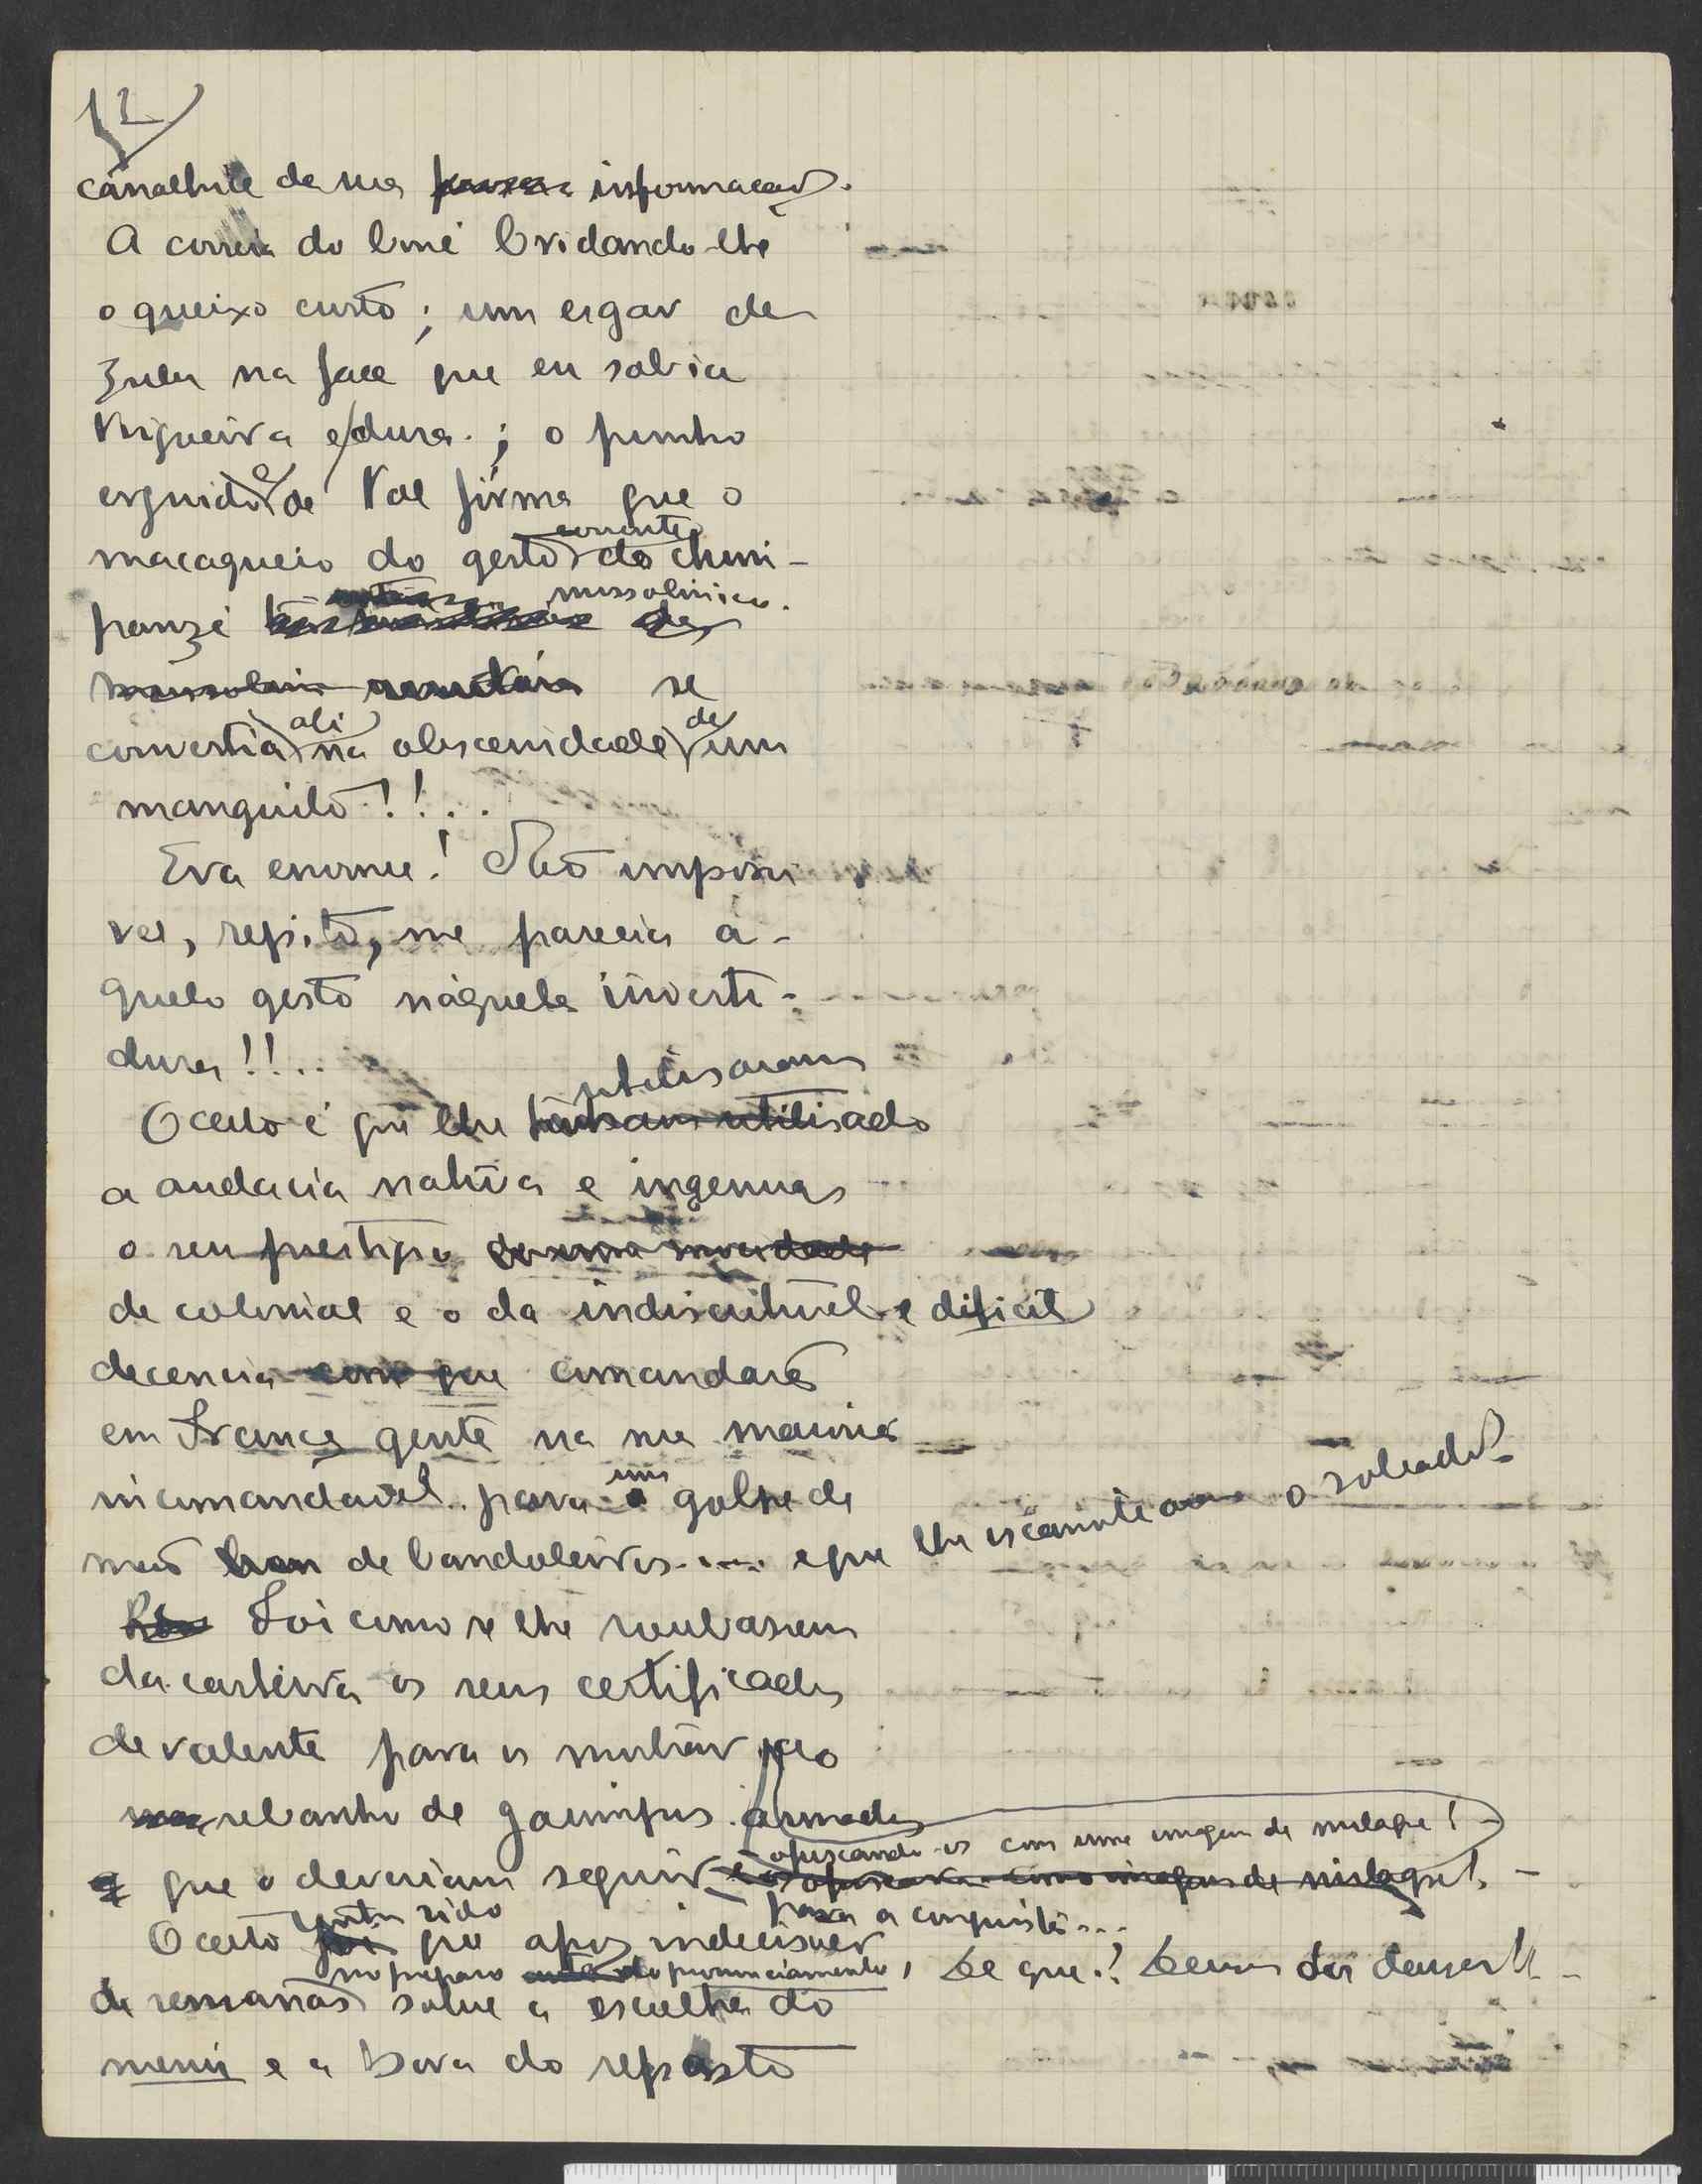 12
canalhite da sua informação.
A correia do boné bridando-lhe
o queixo curto; um esgar de
zulu na face que eu sabia
trigueira e dura.; o punho
erguido e de tal firma que o
macaqueio do gesto corrente do chim-
panzé mussolinico.
se
convertia ali na obscenidade de um
manguito!!...
Era enorme! Não impossi
vel, repito, me parecia a-
quele gesto náquela investi-
dura!!...
O certo é que lhe utilisaram
a audacia nativa e ingenua
o seu prestigio
de colonial e o da indiscutivel e dificil
decencia comandara
em França gente na sua maioria
incomandavel para um golpe de
mão de bandoleiros.... e que lhe escamoteam o soldado.
Foi como se lhe roubassem
da carteira os seus certificados
de valente para os mostrar ao
rebanho de gaimpus armados
que o deveriam seguir ofuscando-os com uma imagem de milagre! -
para a conquista...
O certo que apos indecisões De que? Deus dos deuses!! -
no preparo do pronunciamento,
de semanas sobre a escolha do
menu e a hora do repasto